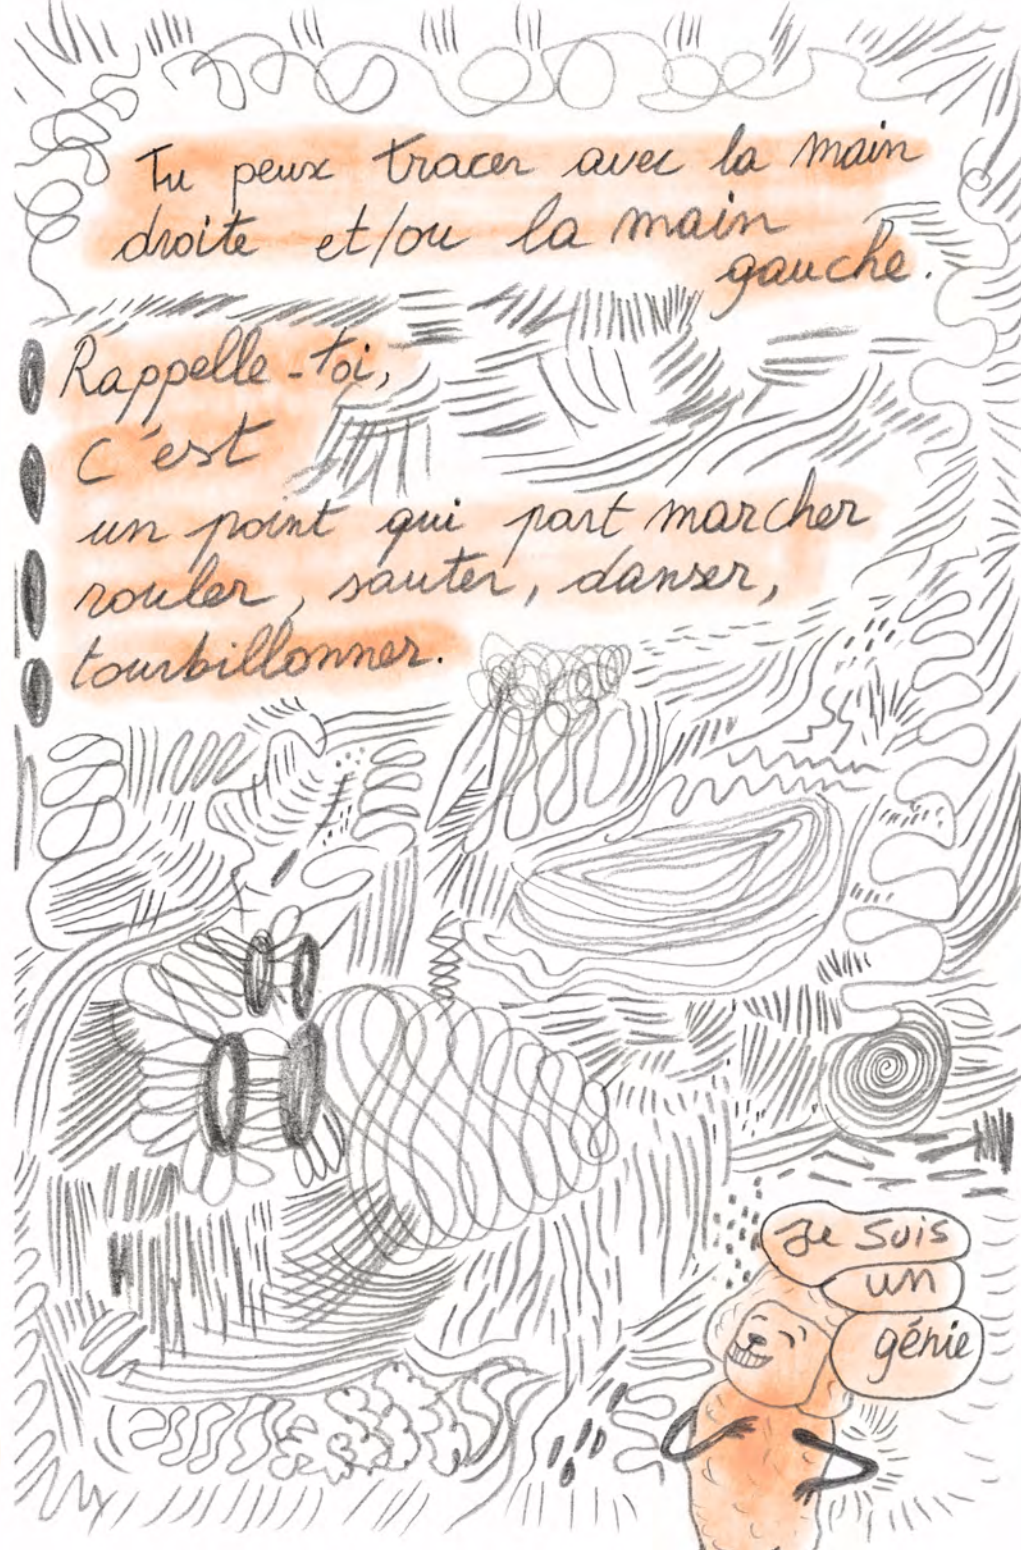 Tu peux tracer avec la main
droite et/ou la main
gauche.
Rappelle-toi,
c'est
un point qui part marcher
rouler, sauter, danser,
tourbillonner.
Je suis
un
génie